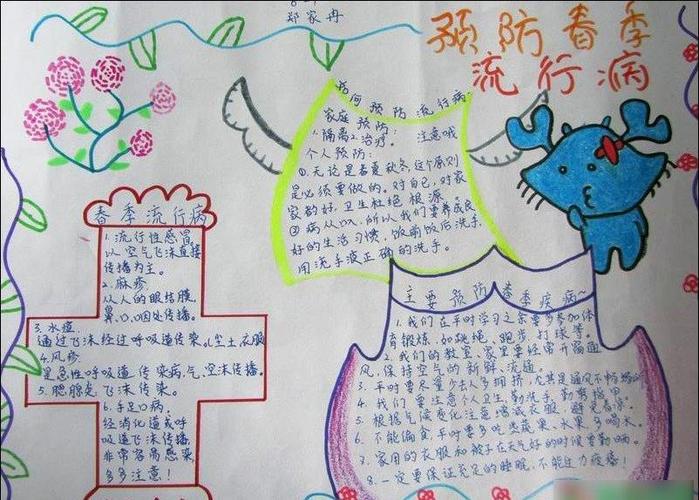 郑家冉
预防春季
流行病
如何预防流行病
家庭预防:
1.隔离2.治疗。 注意哦
个人预防:
①.无论是春夏秋冬,这个原则
是必须要做的。对自己,对家
家都好,卫生杜绝根源。
②病从口入,所以我们要养成良
好的生活习惯,饭前饭后洗手,
用洗手液正确的洗手。
春季流行病
1.流行性感冒
以空气飞沫直接
传播为主。
2.麻疹
从人的眼结膜,
鼻、口、咽处传播。
3.水痘
通过飞沫经过呼吸道传染,尘土衣服
4.风疹
是急性呼吸道传染病,气、空沫传播。
5.腮腺炎飞沫传染。
6.手足口病:
经消化道或呼
吸道飞沫传播,
非常容易感染,
多多注意!
主要预防春季疾病~
1.我们在平时学习之余要多参加体
育锻炼,如跳绳、跑步、打球等。
2.我们的教室、家里要经常开窗通
风,保持空气的新鲜、流通。
3.平时要尽量少去人多拥挤,尤其是通风不畅
4.我们要注意个人卫生,勤洗手,勤剪指甲。
5.根据气候变化注意增减衣服,避免着凉。
6.不能偏食,平时要多吃点蔬菜、水果、多喝水。
7.家用的衣服和被子在天气好的时候要勤晒。
8.一定要保证充足的睡眠,不能过力疲惫!